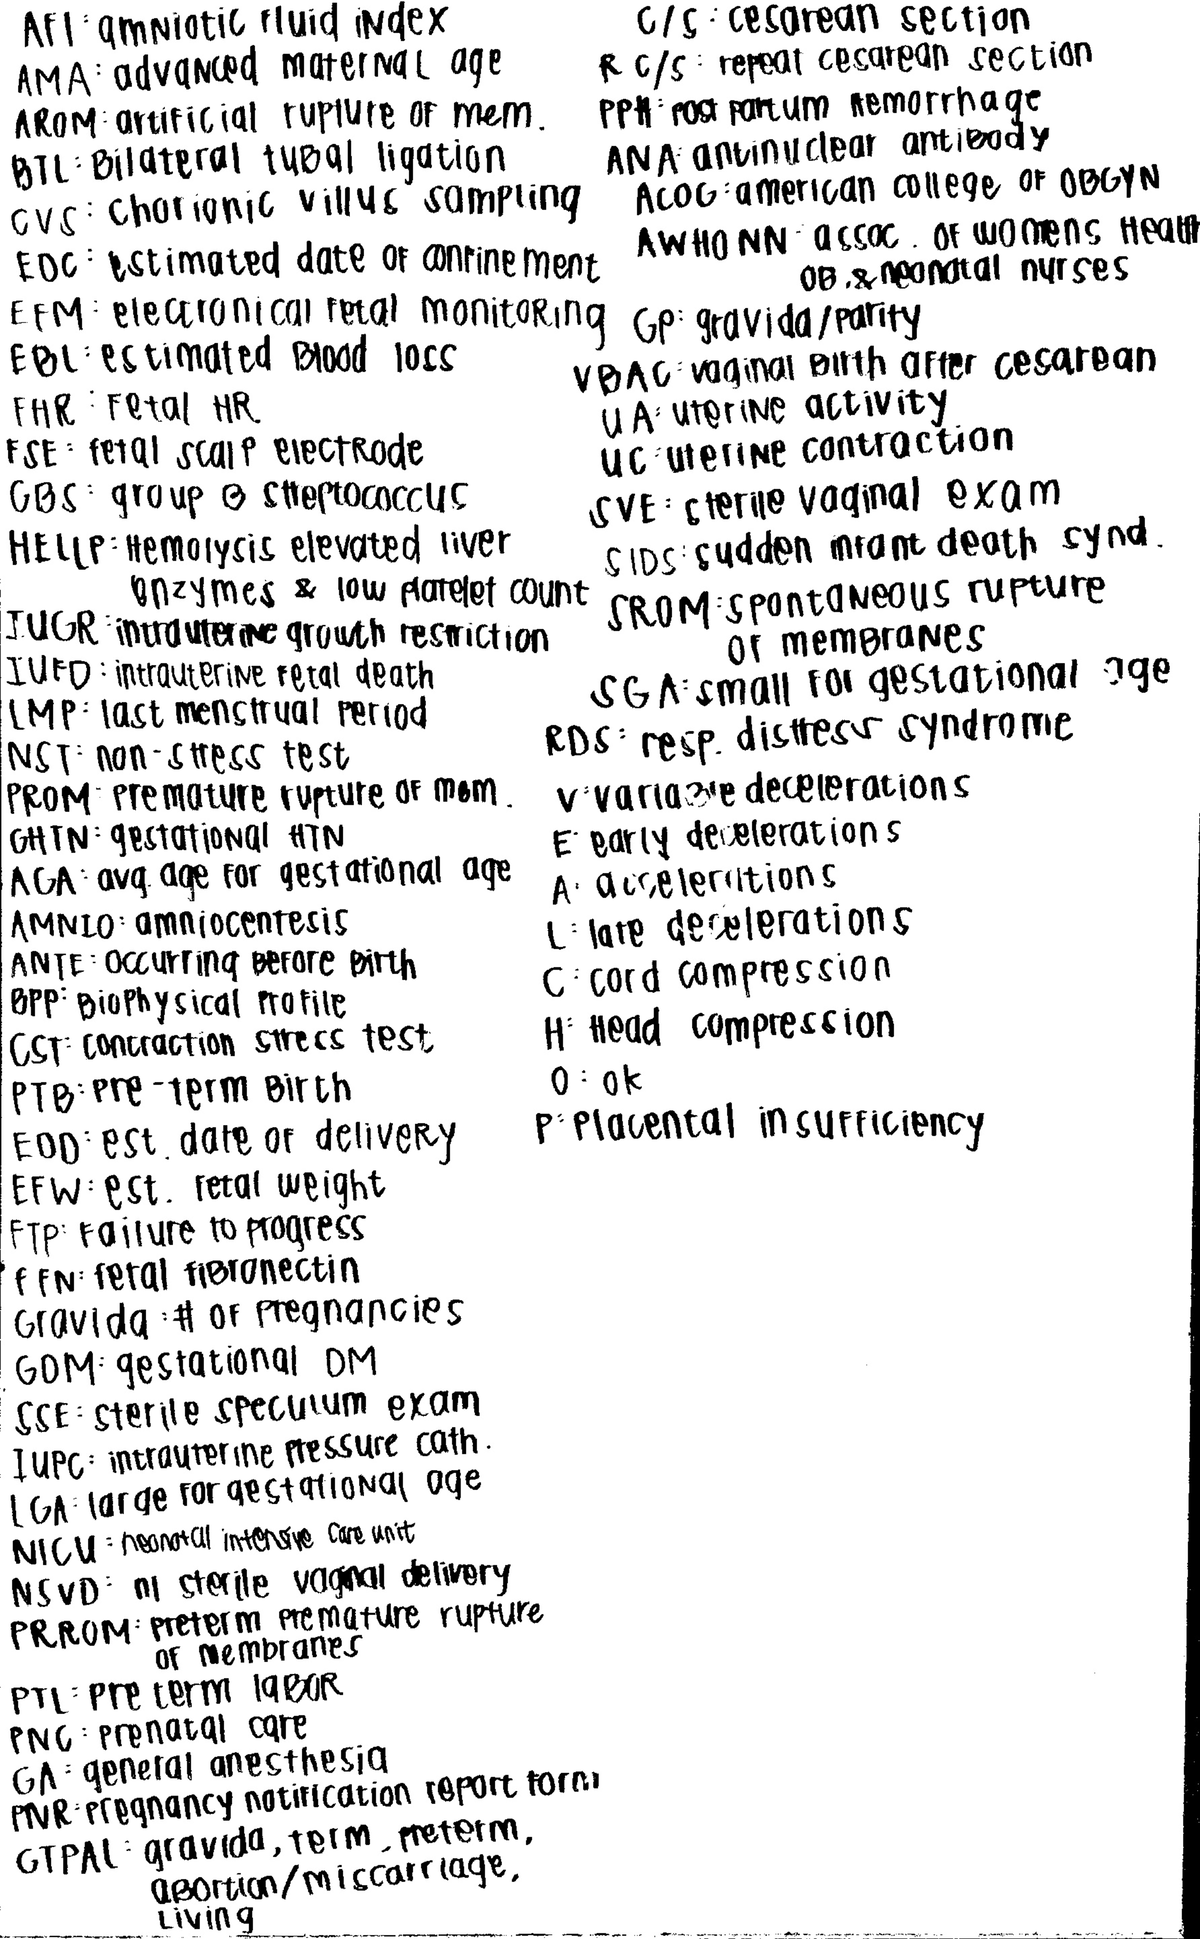 AFI: amniotic fluid index
AMA: advanced maternal age
AROM: artificial rupture of mem.
BTL: Bilateral tubal ligation
CVS: chorionic villus sampling
EDC: estimated date of confinement
EFM: electronical fetal monitoring
EBL: estimated blood loss
FHR: Fetal HR
FSE: fetal scalp electrode
GBS: group B streptococcus
HELLP: Hemolysis elevated liver
enzymes & low platelet count
IUGR: intrauterine growth restriction
IUFD: intrauterine fetal death
LMP: last menstrual period
NST: non-stress test
PROM: premature rupture of mem.
GHTN: gestational HTN
AGA: avg. age for gestational age
AMNIO: amniocentesis
ANTE: occurring before birth
BPP: Biophysical profile
CST: contraction stress test
PTB: pre-term birth
EDD: est. date of delivery
EFW: est. fetal weight
FTP: Failure to progress
fFN: fetal fibronectin
Gravida: # of pregnancies
GDM: gestational DM
SSE: sterile speculum exam
IUPC: intrauterine pressure cath.
LGA: large for gestational age
NICU: neonatal intensive care unit
NSVD: nl sterile vaginal delivery
PRROM: preterm premature rupture
of membranes
PTL: pre term labor
PNC: prenatal care
GA: general anesthesia
PNR: pregnancy notification report form
GTPAL: gravida, term, preterm,
abortion/miscarriage,
Living
C/S: cesarean section
R C/S: repeat cesarean section
PPH: post partum hemorrhage
ANA: antinuclear antibody
ACOG: american college of OBGYN
AWHONN: assoc. of womens Health
OB. & neonatal nurses
GP: gravida/parity
VBAC: vaginal birth after cesarean
UA: uterine activity
UC: uterine contraction
SVE: sterile vaginal exam
SIDS: sudden infant death synd.
SROM: spontaneous rupture
of membranes
SGA: small for gestational age
RDS: resp. distress syndrome
V: variable decelerations
E: early decelerations
A: accelerations
L: late decelerations
C: cord compression
H: Head compression
O: ok
P: Placental insufficiency